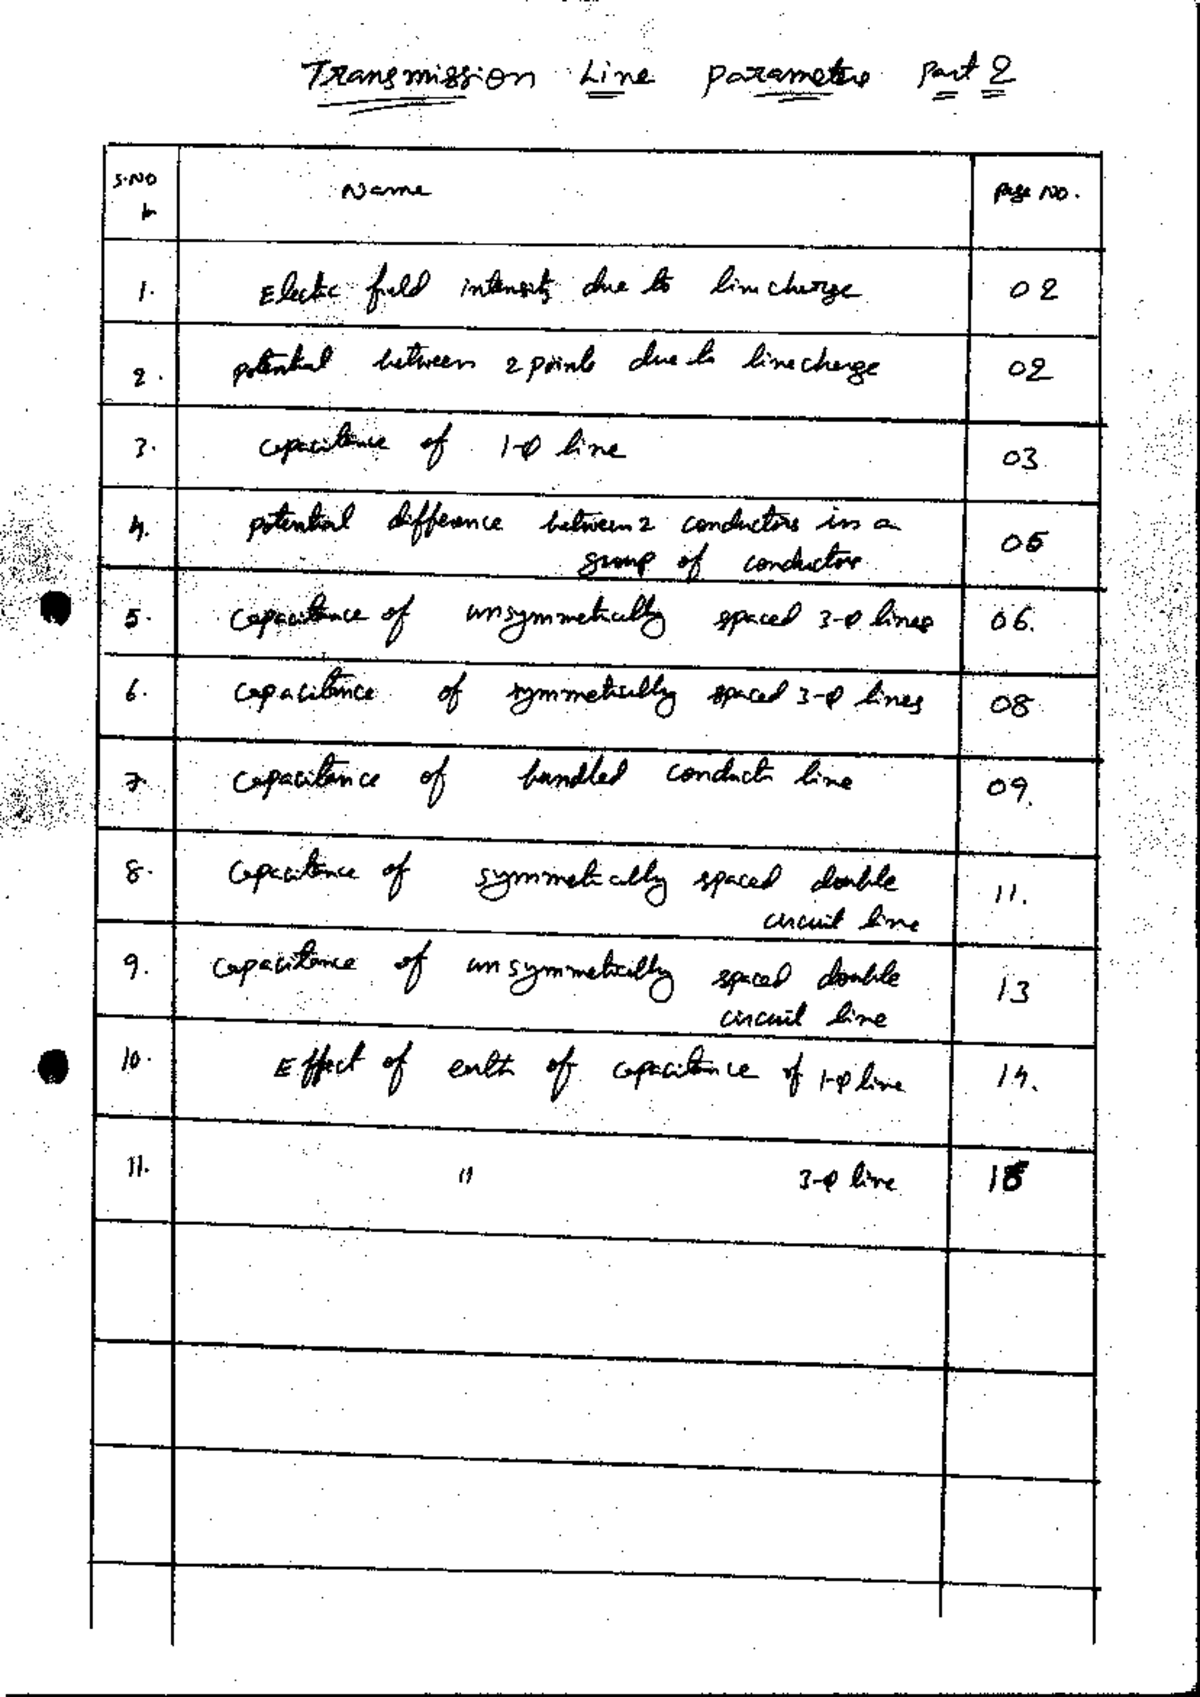 Transmission Line Parameters Part 2
S.NO Name Page NO.
1. Electic field intensity due to line charge 02
2. potential between 2 points due to line charge 02
3. capacitance of 1-φ line 03
4. potential difference between 2 conductors in a 05
group of conductors
5. capacitance of unsymmetically spaced 3-φ lines 06.
6. capacitance of symmetically spaced 3-φ lines 08
7. capacitance of bundled conductr line 09.
8. capacitance of symmetically spaced double 11.
circuit line
9. capacitance of unsymmetically spaced double 13
circuit line
10. Effect of earth of capacitance of 1-φ line 14.
11. " 3-φ line